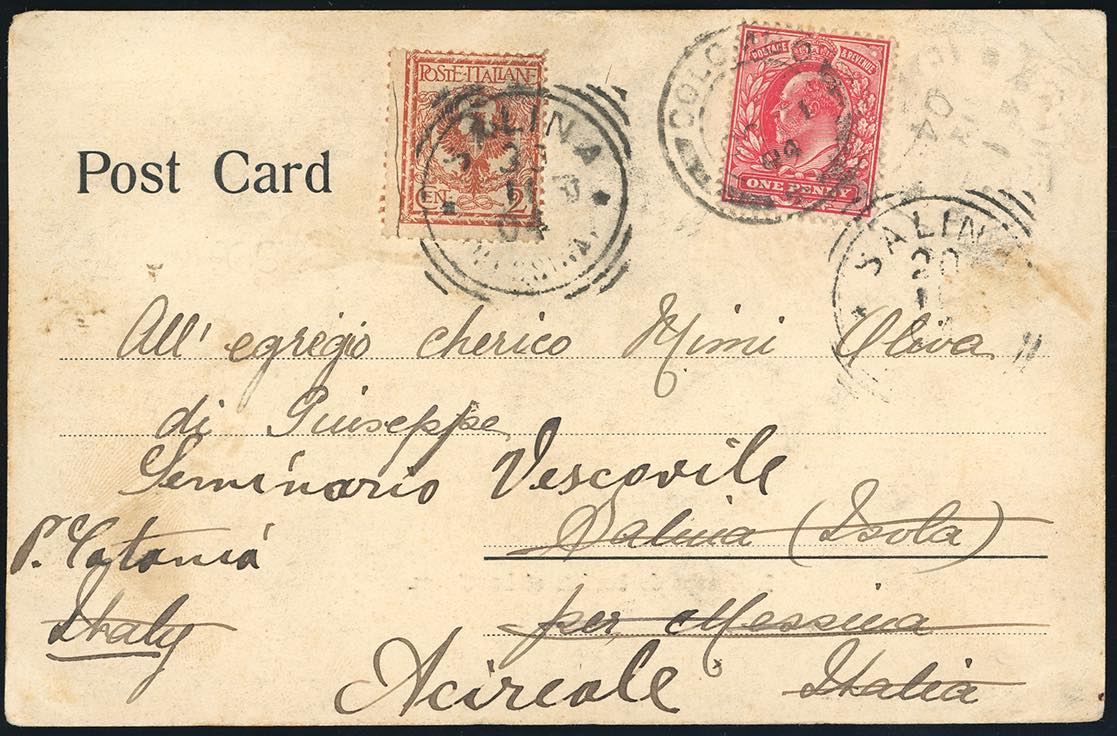 POSTE·ITALIANE
CEN. 2
SALINA
04
POSTAGE & REVENUE
ONE PENNY
COLOMBO
04
04
Post Card
SALIN
20
All' egregio cherico Mimi Oliva
di Giuseppe
Seminario Vescovile
Salina (Isola)
P. Catania
per Messina
Italy
Acireale
Italia